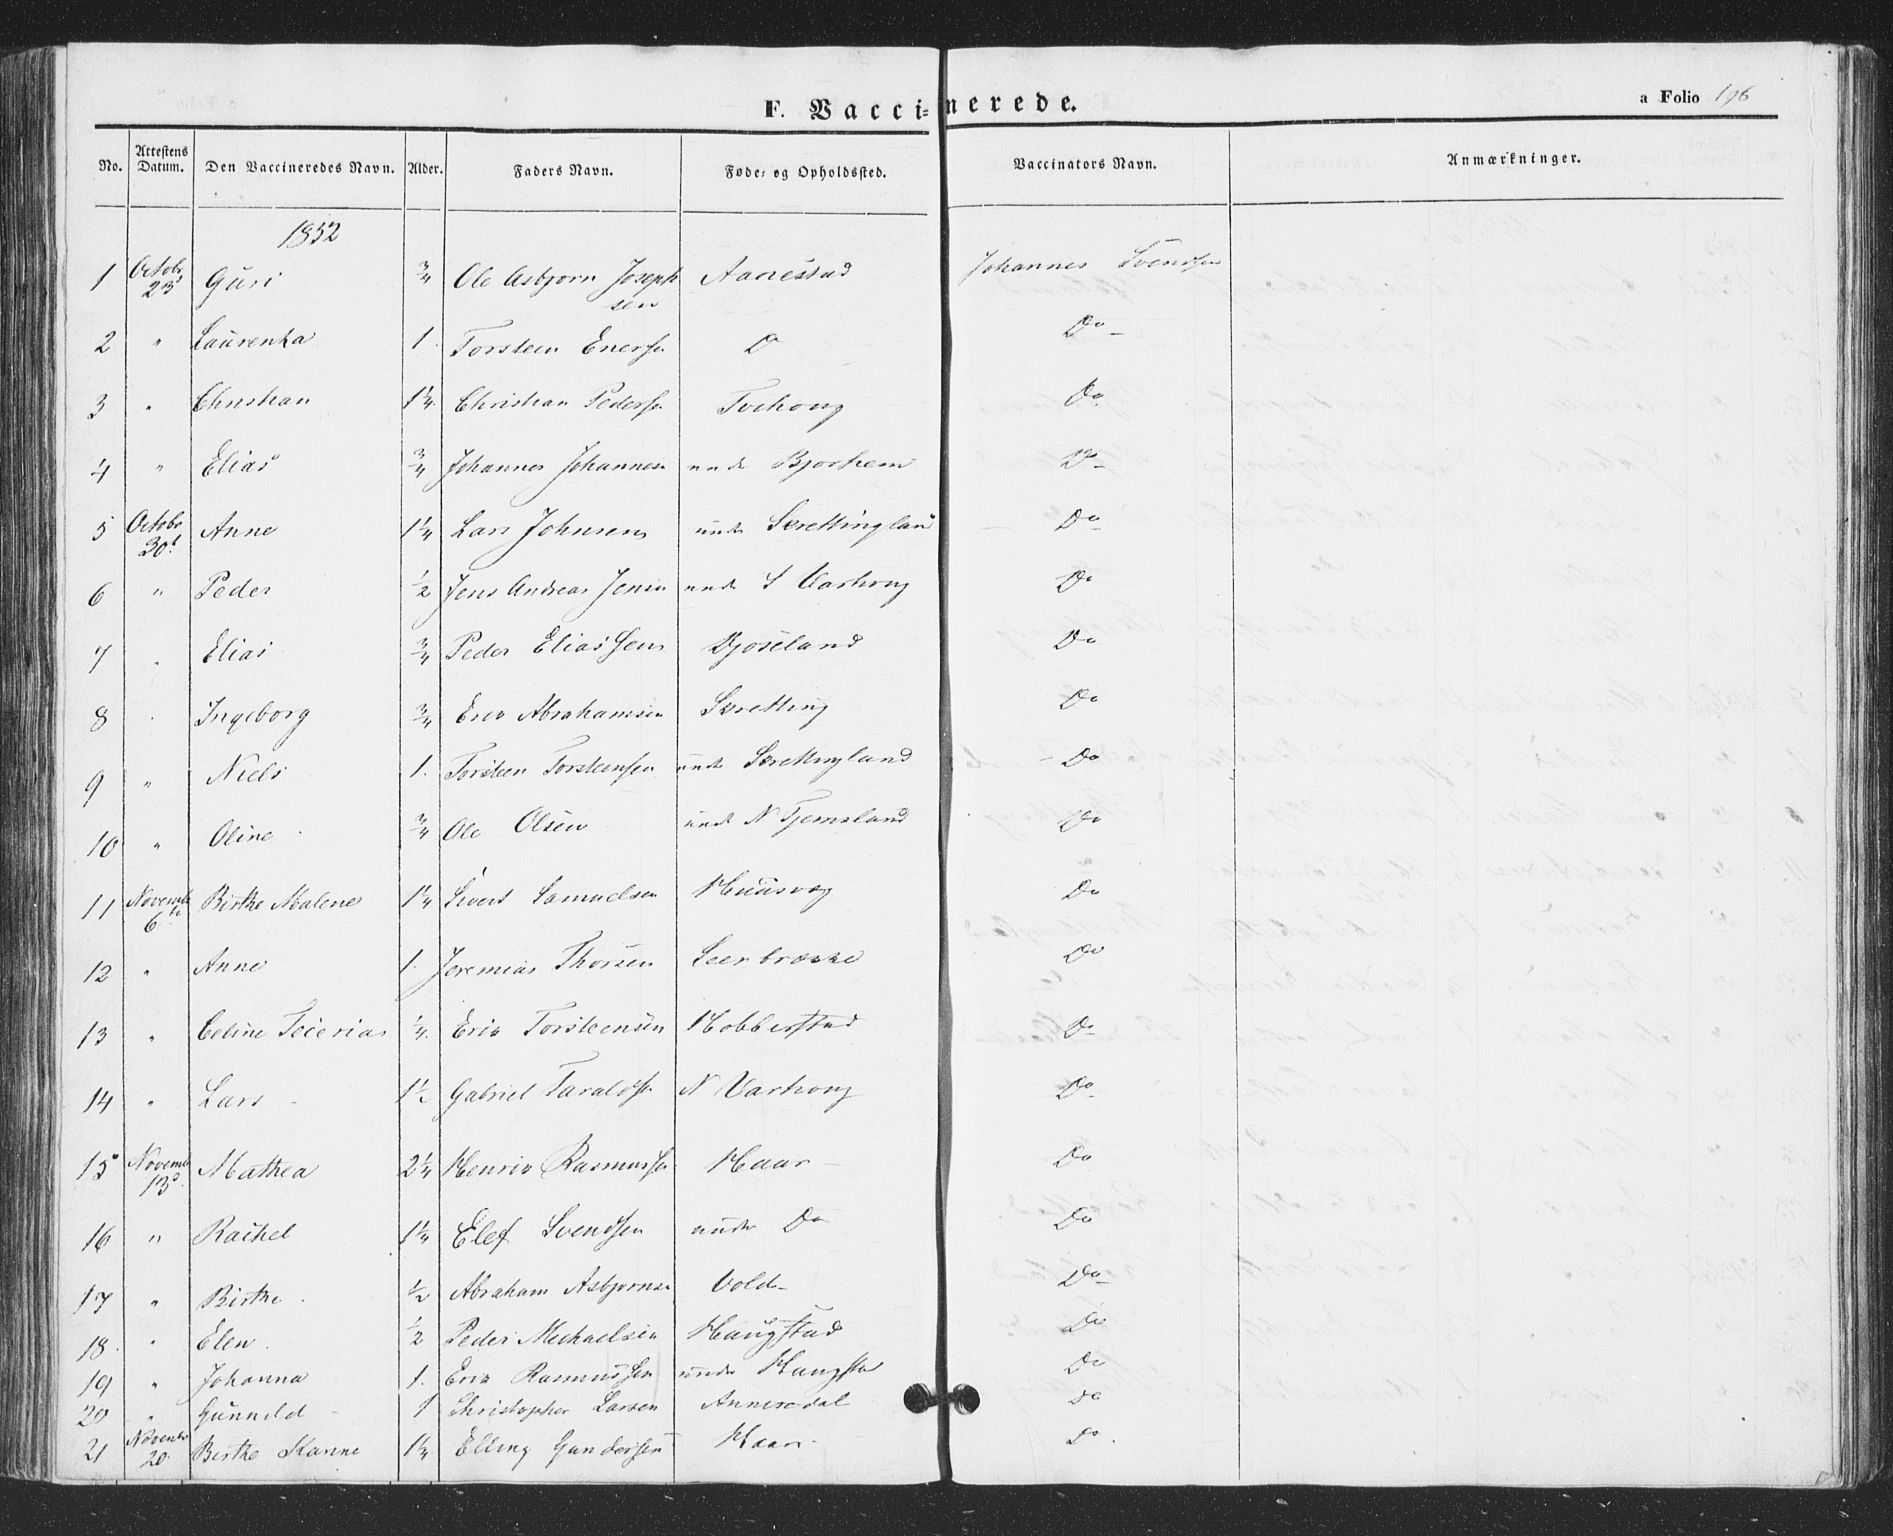 F. Vaccinerede.
a Folio 196
No. Attestens Datum. Den Vaccineredes Navn. Alder. Faders Navn. Føde- og Opholdssted. Vaccinators Navn. Anmærkninger.
1852
1 Octobr 23d Guri 3/4 Ole Asbjørn Josephsen Aanestad Johannes Svendsen
2 " Laurentza 1. Torsteen Enersen Do Do
3 " Christian 1 1/4 Christian Pedersen Tvihoug Do
4 " Elias 3/4 Johannes Johannesen unde Bjorhem Do
5 Octobr 30t Anne 1 1/4 Lars Johnsen unde Skrettingland Do
6 " Peder 1/2 Jens Andreas Jensen unde S Varhoug Do
7 " Elias 3/4 Peder Eliassen Djoseland Do
8 " Ingeborg 3/4 Eric Abrahamsen Skretting Do
9 " Niels 1. Torsteen Torsteensen unde Skrettingland Do
10 " Oline 3/4 Ole Olsen unde N Tjemsland Do
11 Novemb 6te Birthe Malene 1 1/4 Sivert Samuelsen Huusvæg Do
12 " Anne 1. Jeremias Thorsen Leerbrække Do
13 " Celine Teierias 1/4. Eric Torsteensen Hobberstad Do
14 " Lars 1 1/2 Gabriel Taraldsen N Varhoug Do
15 Novemb 13d Mathea 2 1/4 Henric Rasmussen Haar Do
16 " Rachel 1 1/4 Elef Svendsen under Do Do
17 " Birthe 1/2 Abraham Asbjørnsen Vold Do
18. " Elen 1/2 Peder Mechaelsen Haugstad Do
19 " Johanna 1. Eric Rasmussen unde Haugsta Do
20 " Gunnild 1 Christopher Larsen Annesdal do
21 Novembr 20 Birthe Kanne 1 1/4 Elling Gundersen Haar Do.